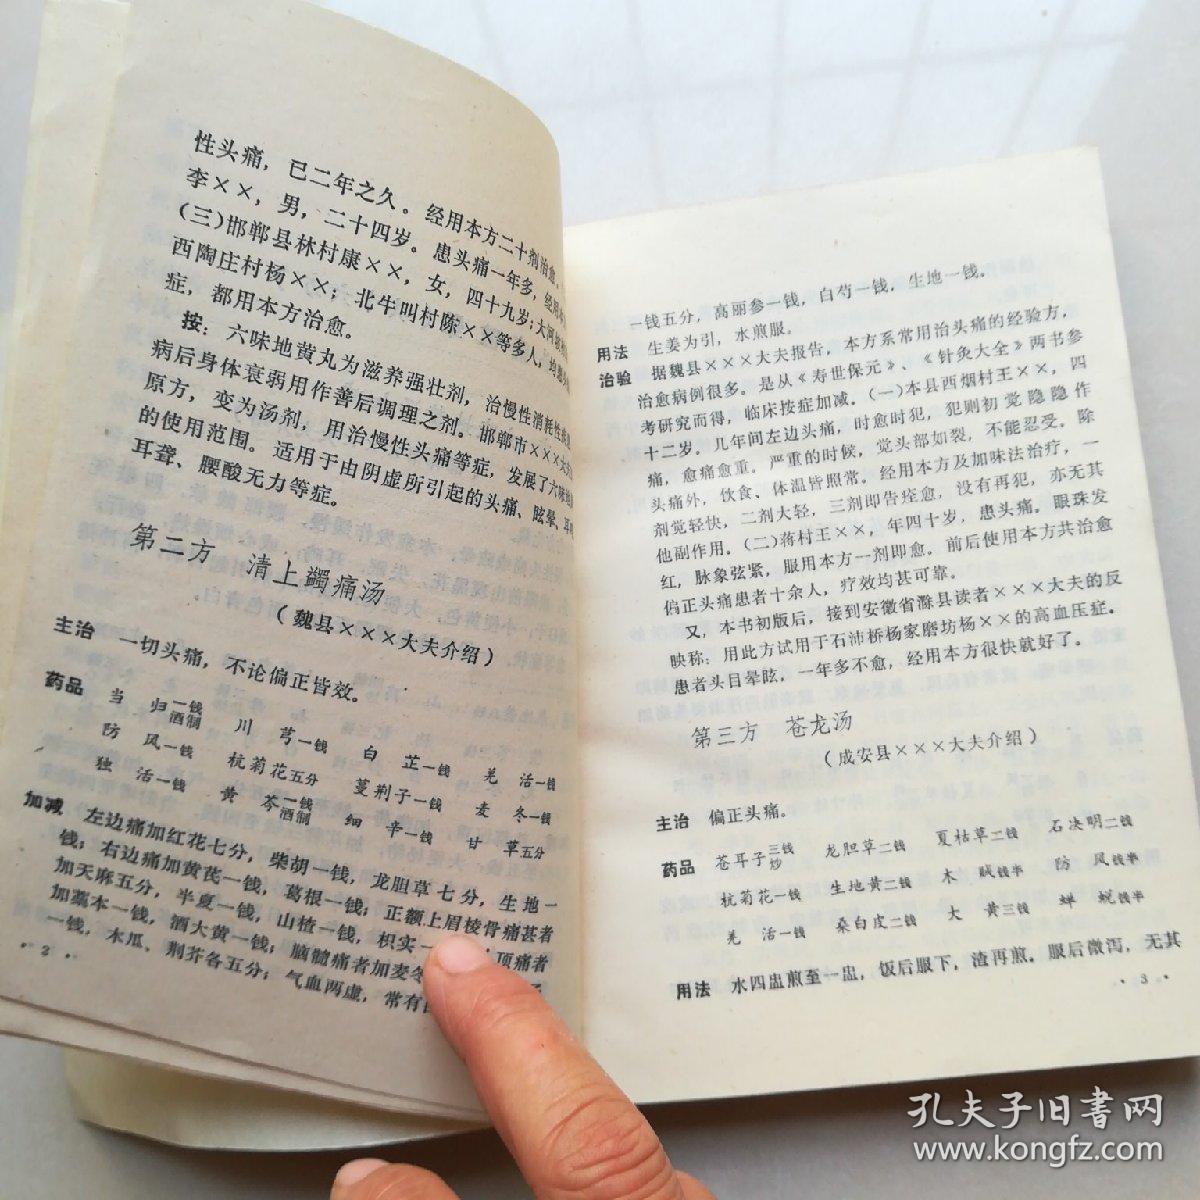 性头痛，已二年之久。经用本方二十剂治愈。
李××，男，二十四岁。患头痛一年多，经用本
(三)邯郸县林村康××，女，四十九岁；大河
西陶庄村杨××；北牛叫村陈××等多人，
症，都用本方治愈。
按：六味地黄丸为滋养强壮剂，治慢性消耗性
病后身体衰弱用作善后调理之剂。邯郸市×××大
原方，变为汤剂，用治慢性头痛等症，发展了六味
的使用范围。适用于由阴虚所引起的头痛、眩晕、耳
耳聋、腰酸无力等症。
第二方 清上蠲痛汤
（魏县×××大夫介绍）
主治 一切头痛，不论偏正皆效。
药品 当归一钱酒制 川芎一钱 白芷一钱 羌活一钱
防风一钱 杭菊花五分 蔓荆子一钱 麦冬一钱
独活一钱 黄芩一钱酒制 细辛一钱 甘草五分
加减 左边痛加红花七分，柴胡一钱，龙胆草七分，生地一
钱；右边痛加黄芪一钱，葛根一钱；正额上眉棱骨痛甚者
加天麻五分，半夏一钱，山楂一钱，枳实一 顶痛者
加藁本一钱，酒大黄一钱；脑髓痛者加麦冬
一钱，木瓜、荆芥各五分；气血两虚，常有
· 2 ·
一钱五分，高丽参一钱，白芍一钱，生地一钱。
用法 生姜为引，水煎服。
治验 据魏县×××大夫报告，本方系常用治头痛的经验方，
治愈病例很多。是从《寿世保元》、《针灸大全》两书参
考研究而得，临床按症加减。(一)本县西烟村王××，四
十二岁。几年间左边头痛，时愈时犯，犯则初觉隐隐作
痛，愈痛愈重。严重的时候，觉头部如裂，不能忍受。除
头痛外，饮食、体温皆照常。经用本方及加味法治疗，一
剂觉轻快，二剂大轻，三剂即告痊愈，没有再犯，亦无其
他副作用。(二)蒋村王××，年四十岁，患头痛。眼珠发
红，脉象弦紧，服用本方一剂即愈。前后使用本方共治愈
偏正头痛患者十余人，疗效均甚可靠。
又，本书初版后，接到安徽省滁县读者×××大夫的反
映称：用此方试用于石沛桥杨家磨坊杨××的高血压症。
患者头目晕眩，一年多不愈，经用本方很快就好了。
第三方 苍龙汤
（成安县×××大夫介绍）
主治 偏正头痛。
药品 苍耳子三钱炒 龙胆草二钱 夏枯草二钱 石决明二钱
杭菊花一钱 生地黄二钱 木贼钱半 防风钱半
羌活一钱 桑白皮二钱 大黄三钱 蝉蜕钱半
用法 水四盅煎至一盅，饭后服下，渣再煎。服后微泻，无其
· 3 ·
孔夫子旧书网
www.kongfz.com